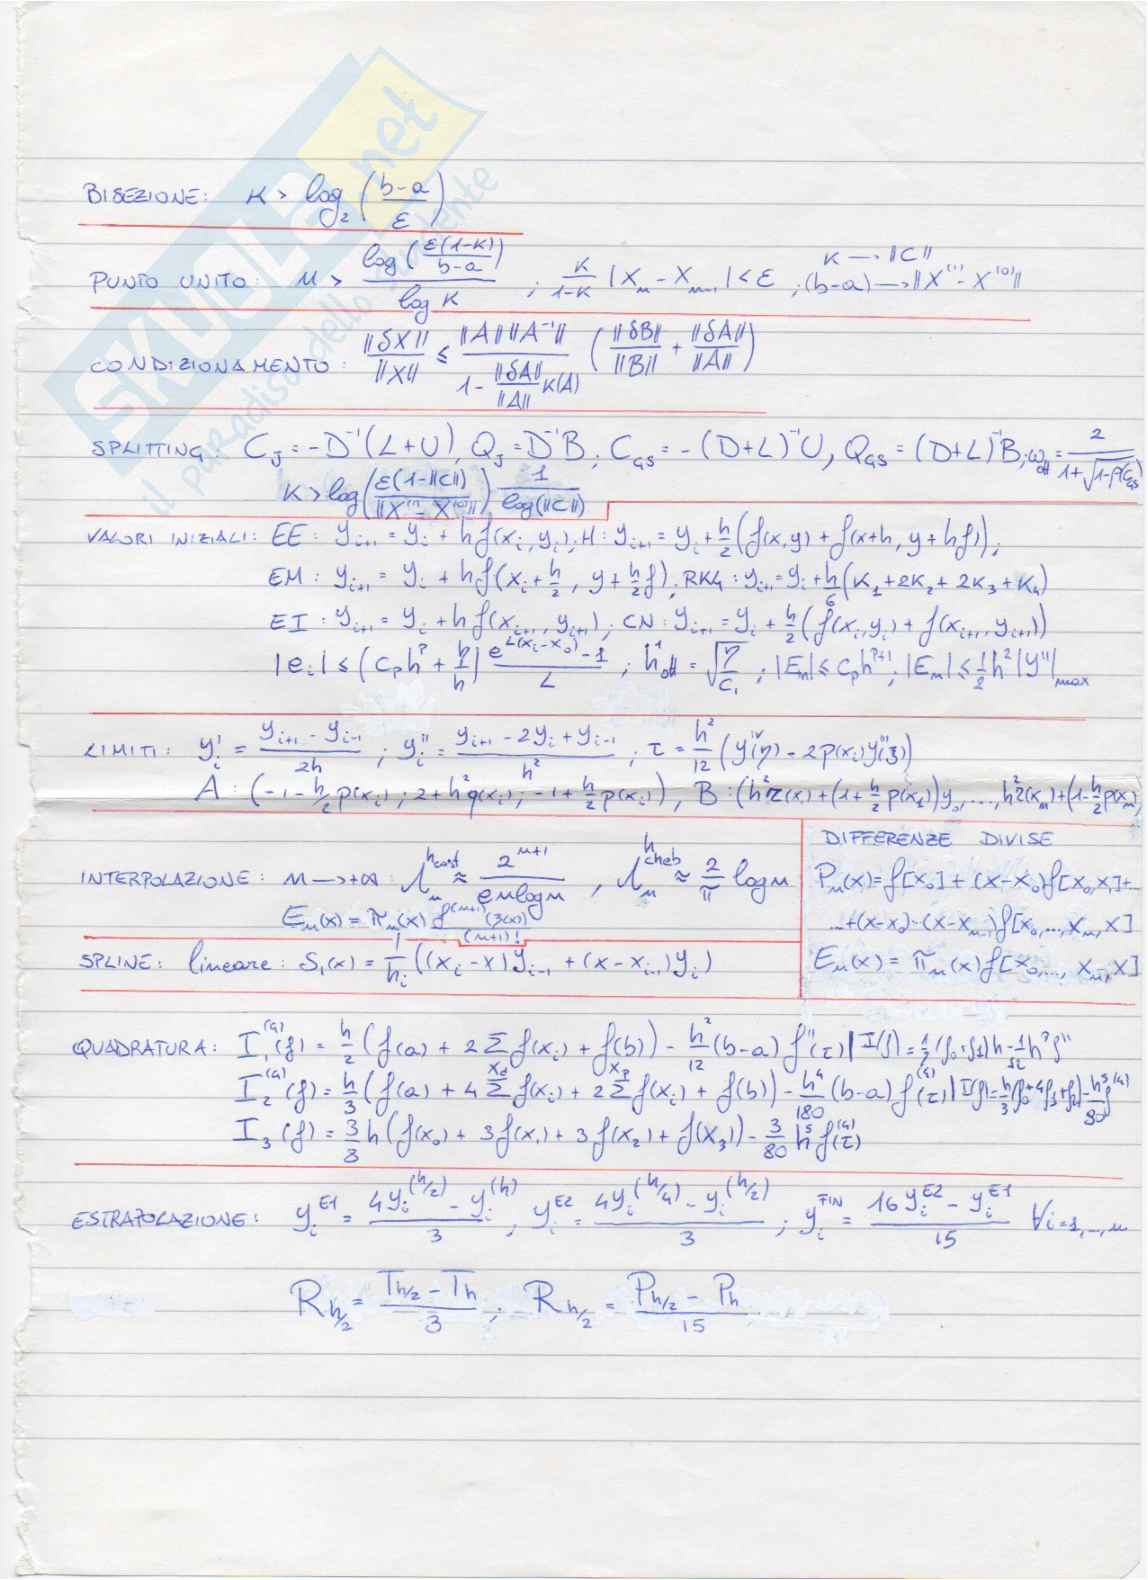 SKUOLA.net
il paradiso dello studente
BISEZIONE: K > log₂ ((b-a)/ε)
PUNTO UNITO: n > log(ε(1-K)/(b-a)) / log K ; K/(1-K) |Xₙ - Xₙ₋₁| < ε ; K → ||C|| (b-a) → ||X⁽¹⁾ - X⁽⁰⁾||
CONDIZIONAMENTO: ||δX||/||X|| ≤ ||A|| ||A⁻¹|| / (1 - ||δA||/||A|| K(A)) (||δB||/||B|| + ||δA||/||A||)
SPLITTING: C_J = -D⁻¹(L+U), Q_J = D⁻¹B ; C_GS = -(D+L)⁻¹U, Q_GS = (D+L)⁻¹B ; ω_ott = 2/(1+√(1-ρ(C_GS)))
K > log(ε(1-||C||)/||X⁽¹⁾ - X⁽⁰⁾||) 1/log(||C||)
VALORI INIZIALI: EE: yᵢ₊₁ = yᵢ + h f(xᵢ, yᵢ); H: yᵢ₊₁ = yᵢ + h/2 (f(x,y) + f(x+h, y+hf));
EM: yᵢ₊₁ = yᵢ + h f(xᵢ + h/2, y + h/2 f); RK4: yᵢ₊₁ = yᵢ + h/6 (K₁ + 2K₂ + 2K₃ + K₄)
EI: yᵢ₊₁ = yᵢ + h f(xᵢ₊₁, yᵢ₊₁); CN: yᵢ₊₁ = yᵢ + h/2 (f(xᵢ, yᵢ) + f(xᵢ₊₁, yᵢ₊₁))
|eᵢ| ≤ (c_p hᵖ + η/h) (e^{L(xᵢ-x₀)} - 1)/L ; h¹_ott = √(η/c₁) ; |Eₙ| ≤ c_p hᵖ⁺¹ ; |Eₙ| ≤ 1/2 h² |y''|max
LIMITI: yᵢ' = (yᵢ₊₁ - yᵢ₋₁)/2h ; yᵢ'' = (yᵢ₊₁ - 2yᵢ + yᵢ₋₁)/h² ; τ = h²/12 (yⁱᵛ(η) - 2p(xᵢ)y'''(ξ))
A: (-1 - h/2 p(xᵢ) ; 2 + h²q(xᵢ) ; -1 + h/2 p(xᵢ)), B: (h²r(x₁) + (1 + h/2 p(x₁))y₀, ..., h²r(xₙ) + (1 - h/2 p(xₙ)
INTERPOLAZIONE: n → +∞ : Λₙ^{h cost} ≈ 2ⁿ⁺¹/(e n log n) , Λₙ^{h cheb} ≈ 2/π log n
Eₙ(x) = πₙ(x) f⁽ⁿ⁺¹⁾(ξ(x))/(n+1)!
SPLINE: lineare: S₁(x) = 1/hᵢ ((xᵢ - x)yᵢ₋₁ + (x - xᵢ₋₁)yᵢ)
DIFFERENZE DIVISE
Pₙ(x) = f[x₀] + (x-x₀)f[x₀,x₁] + ...
... + (x-x₀)··(x-xₙ₋₁)f[x₀, ..., xₙ, x]
Eₙ(x) = πₙ(x) f[x₀, ..., xₙ, x]
QUADRATURA: I₁⁽ᴳ⁾(f) = h/2 (f(a) + 2 Σ f(xᵢ) + f(b)) - h²/12 (b-a) f''(τ) | I(f) = 1/2 (f₀+f₁)h - 1/12 h³f''
I₂⁽ᴳ⁾(f) = h/3 (f(a) + 4 Σ_{x_d} f(xᵢ) + 2 Σ_{x_p} f(xᵢ) + f(b)) - h⁴/180 (b-a) f⁽⁴⁾(τ) | I(f) = h/3 (f₀+4f₁+f₂) - h⁵/90 f⁽⁴⁾
I₃(f) = 3/8 h (f(x₀) + 3f(x₁) + 3f(x₂) + f(x₃)) - 3/80 h⁵ f⁽⁴⁾(τ)
ESTRAPOLAZIONE: yᵢᴱ¹ = (4yᵢ^(h/2) - yᵢ^(h))/3 ; yᵢᴱ² = (4yᵢ^(h/4) - yᵢ^(h/2))/3 ; yᵢ^FIN = (16yᵢᴱ² - yᵢᴱ¹)/15 ∀i = 1, ..., n
R_{h/2} = (T_{h/2} - T_h)/3 ; R_{h/2} = (P_{h/2} - P_h)/15